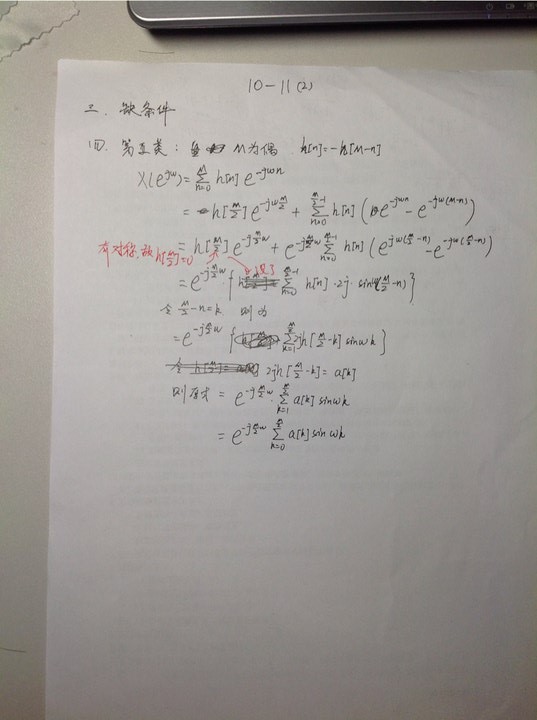 10-11(2)
三. 缺条件
四. 第三类: M为偶 h[n]=-h[M-n]
X(e^{jω})=∑_{n=0}^{M} h[n] e^{-jωn}
= h[M/2] e^{-jωM/2} + ∑_{n=0}^{M/2-1} h[n] (e^{-jωn} - e^{-jω(M-n)})
有对称,故h[M/2]=0
= h[M/2] e^{-jM/2ω} + e^{-jM/2ω} ∑_{n=0}^{M/2-1} h[n] (e^{jω(M/2-n)} - e^{-jω(M/2-n)})
= e^{-jM/2ω} · { ∑_{n=0}^{M/2-1} h[n]·2j·sinω(M/2-n)}
令 M/2-n=k 则为
= e^{-jM/2ω} { ∑_{k=1}^{M/2} 2jh[M/2-k] sinωk}
2jh[M/2-k]=a[k]
则原式 = e^{-jM/2ω} · ∑_{k=1}^{M/2} a[k] sinωk
= e^{-jM/2ω} ∑_{k=0}^{M/2} a[k] sinωk